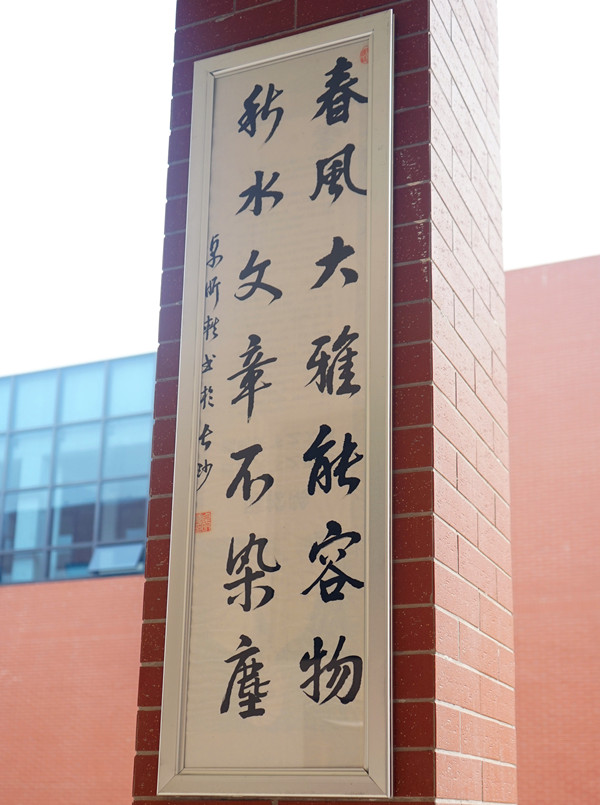 春風大雅能容物
秋水文章不染塵
書於長沙